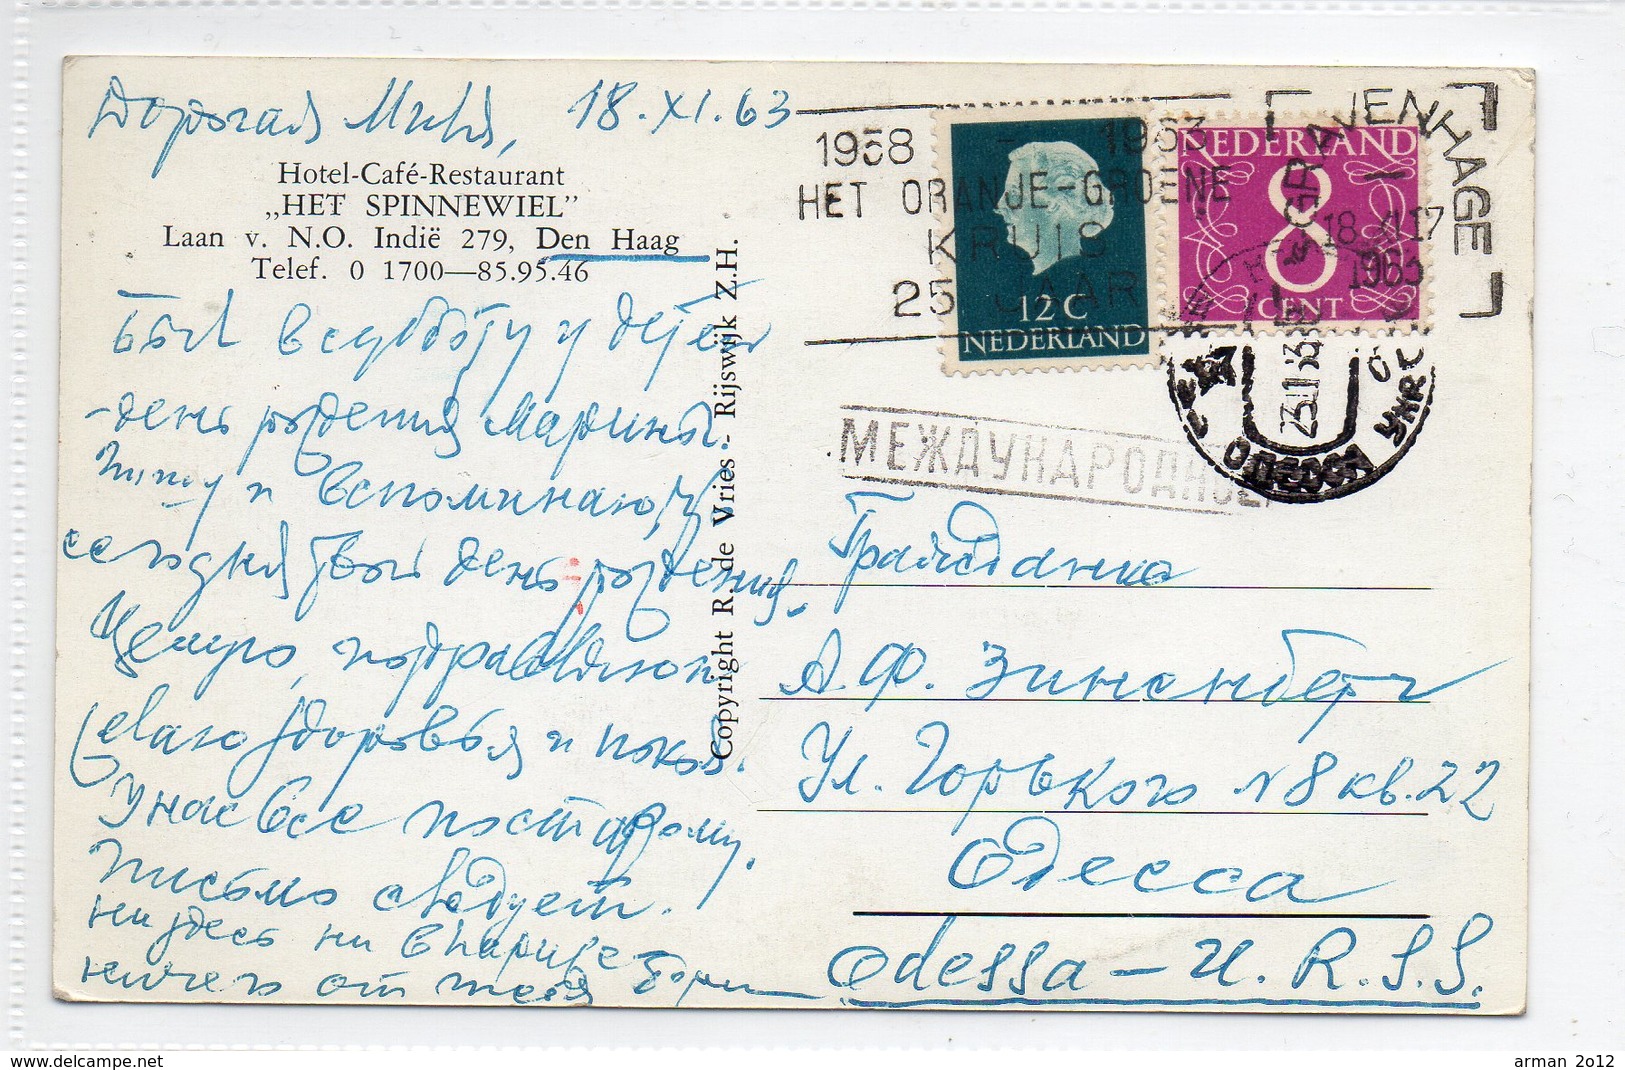 Дорогая Миля, 18.XI.63
Hotel-Café-Restaurant
„HET SPINNEWIEL”
Laan v. N.O. Indië 279, Den Haag
Telef. 0 1700—85.95.46
Был в субботу у детей
-день рождения Марины.
Пишу и вспоминаю,
сегодня твой день рождения.
Целую, поздравляю и
желаю здоровья и покоя.
У нас все по старому.
Письмо следует.
ни здесь ни в Париже
ничего от тебя
Copyright R. de Vries - Rijswijk Z.H.
1958 - 1963
HET ORANJE-GROENE
KRUIS
25 JAAR
'S GRAVENHAGE
18.XI.17
1963
12 C
NEDERLAND
NEDERLAND
8
CENT
ОДЕССА
МЕЖДУНАРОДНОЕ
Гражданке
А.Ф. Зиненберг
Ул. Горького № 8 кв. 22
Одесса
Odessa – U.R.S.S.
http://www.delcampe.net
arman 2012